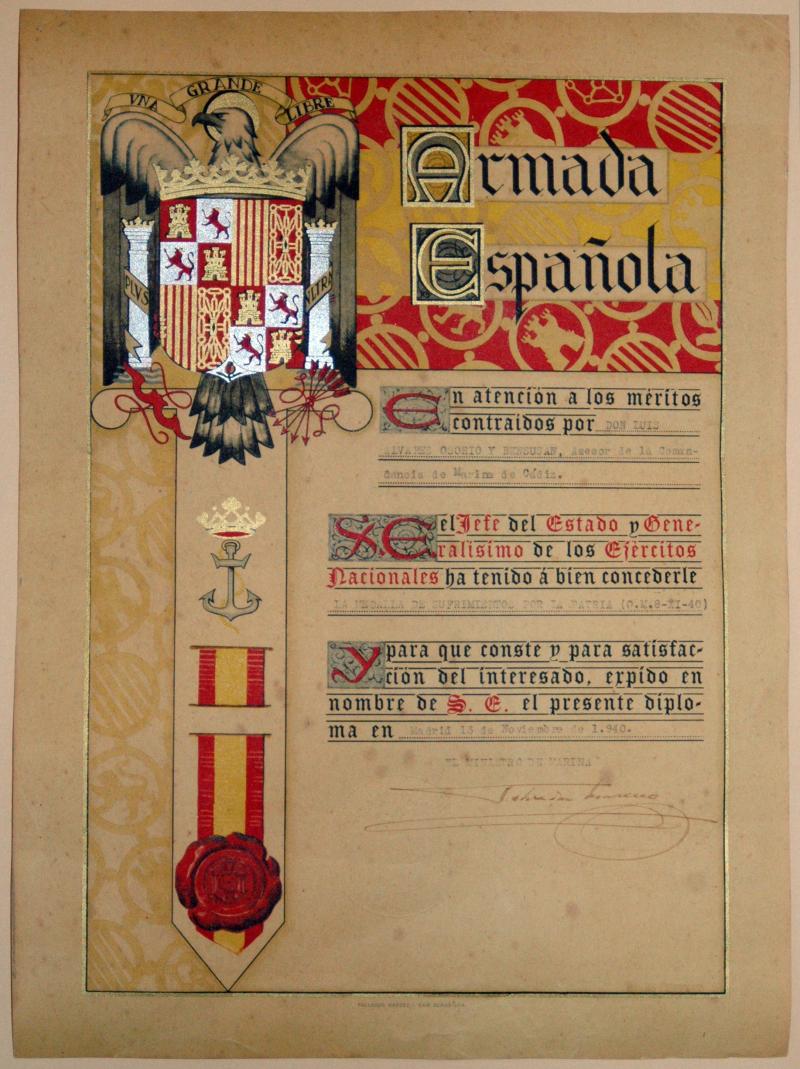 VNA GRANDE LIBRE
PLVS VLTRA
Armada
Española
En atención a los méritos
contraidos por DON LUIS
ALVAREZ OSORIO Y BENSUSAN, Asesor de la Coman-
dancia de Marina de Cádiz.
X E el Jefe del Estado y Gene-
ralisimo de los Ejércitos
Nacionales ha tenido á bien concederle
LA MEDALLA DE SUFRIMIENTOS POR LA PATRIA (O.M.8-XI-40)
Y para que conste y para satisfac-
ción del interesado, expido en
nombre de S. E. el presente diplo-
ma en Madrid 13 de Noviembre de 1.940.
EL MINISTRO DE MARINA
Moreno